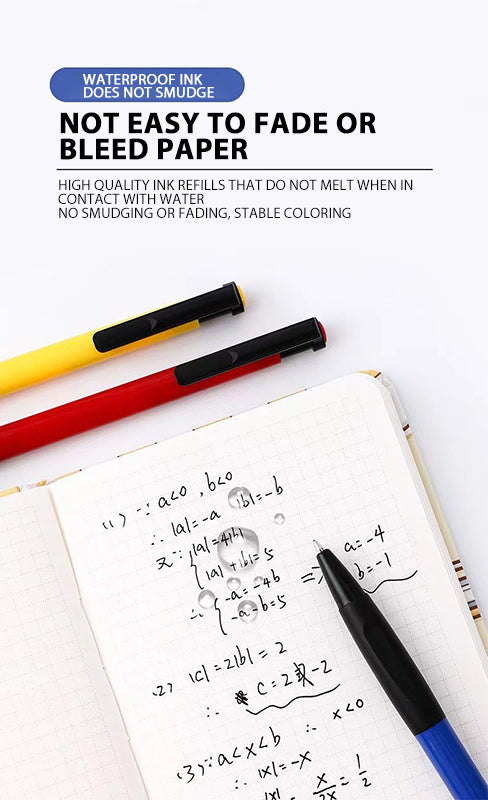 WATERPROOF INK
DOES NOT SMUDGE
NOT EASY TO FADE OR
BLEED PAPER
HIGH QUALITY INK REFILLS THAT DO NOT MELT WHEN IN
CONTACT WITH WATER
NO SMUDGING OR FADING, STABLE COLORING
(1) ∵ a<0 , b<0
∴ |a|=-a |b|=-b
又∵ { |a|=4|b|
|a|+|b|=5
∴ { -a=-4b
-a-b=5
=> a=-4
b=-1
(2) |c|=2|b|=2
∴ c=2 -2
(3) ∵ a<x<b ∴ x<0
∴ |x|=-x
x/2x = 1/2